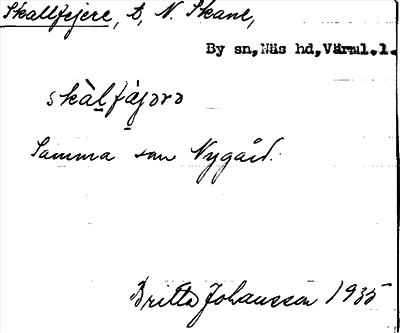 Skallfejere, t, N. Skane,
By sn, Näs hd, Värml.l.
skàlfäjərə
Samma som Nygård.
Britta Johansson 1935